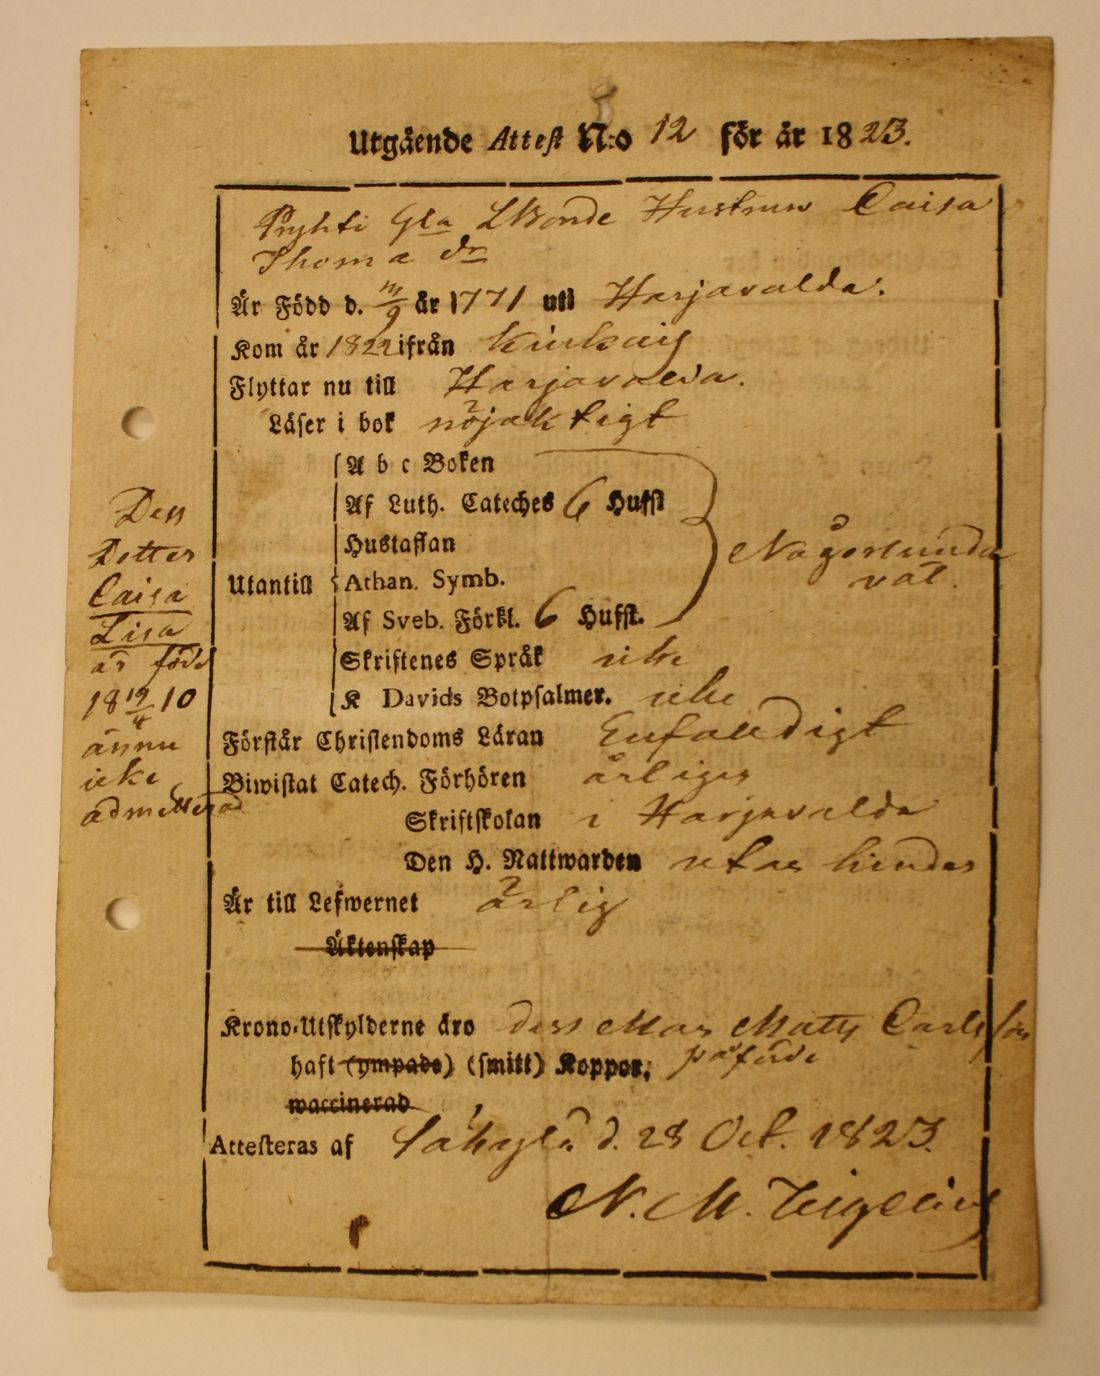 Utgående Attest N:o 12 för år 1823.
Gla Bonde Hustrun Caisa
Thoma dr
Är Född d. 9 år 1771 uti Harjavalda.
Kom år 1822 ifrån Kiukais
Flyttar nu till Harjavalda.
Läser i bok nöjaktigt
A b c Boken
Af Luth. Cateches 6 Hufst
Hustaflan
Någorlunda
Utantill Athan. Symb.
väl.
Af Sveb. Förkl. 6 Hufst.
Skriftenes Språk icke
K Davids Botpsalmer. icke
Förstår Christendoms Läran Enfaldigt
Biwistat Catech. Förhören årligen
Skriftskolan i Harjavalda
Den H. Nattwarden utan hinder
Är till Lefwernet ärlig
Äktenskap
Krono-Utskylderne äro dess Man Matts Carlsson
påförde
haft (ympade) (smitt) Koppor,
waccinerad
Attesteras af Säkylä d. 28 Oct. 1823.
N. M.
Dess
Dotter
Caisa
Lisa
är född
18 19/4 10
ännu
icke
admitterad